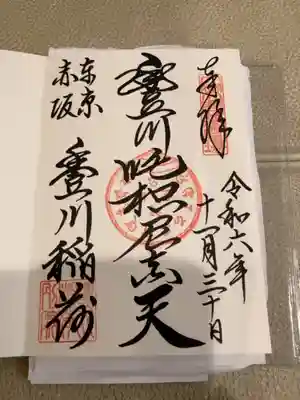 奉拝
令和六年
十一月三十日
豊川吒枳尼真天
東京
赤坂
豊川稲荷